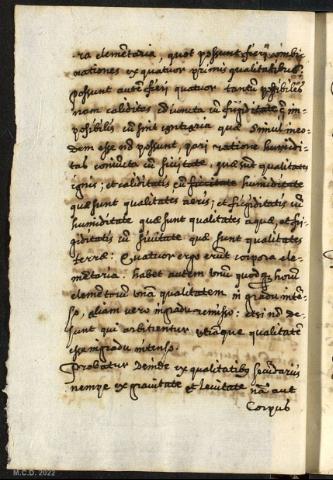 ra elemẽtaria, quot possunt fierj combi
nationes ex quatuor primis qualitatibus,
possunt autẽ fierj quatuor tantũ possibiles
nam caliditas coniuncta cũ frigiditate ẽ im-
possibilis cũ sint contraria quæ simul in eo-
dem esse nõ possunt, pari ratione humidi-
tas coniũcta cũ siccitate, quæ sũt qualitates
ignis; et caliditas cũ siccitate humiditate
quæ sunt qualitates aeris; et frigiditatis cũ
humiditate quæ sunt qualitates aquæ, et fri-
giditatis cũ siccitate quæ sunt qualitates
terræ. Quatuor ergo erũt corpora ele-
mẽtaria. habet autem unũ quodq; horũ
elemẽtorũ unã qualitatem in gradu intẽ-
so, aliam vero in gradu remisso: etsi nõ de-
sunt qui arbitrentur utrãque qualitatẽ
esse in gradu intenso.
Probatur deinde ex qualitatibus secũdariis
nempe ex gravitate et levitate nã aut
Corpus
M.C.D. 2022